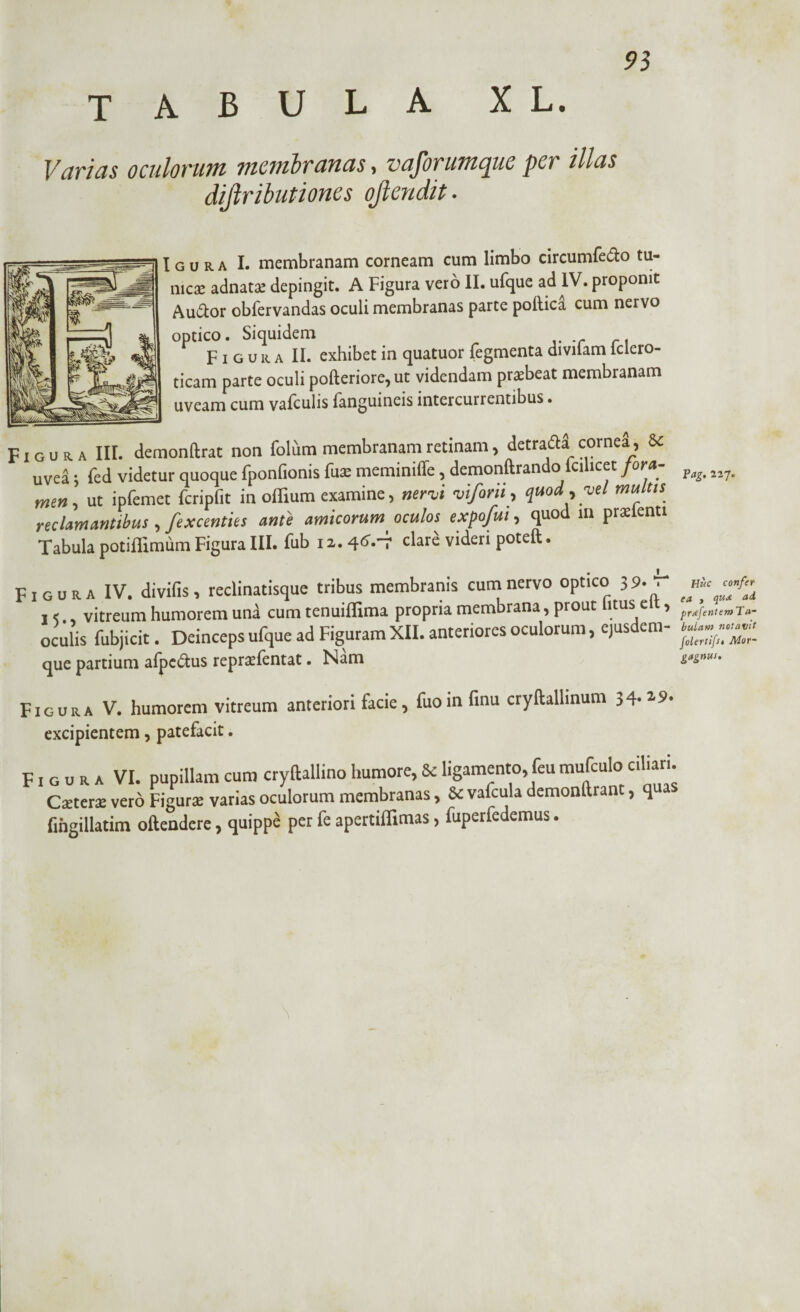 93
TABULA XL.
Varias oculorum membranas, vaſorumque per illas
diſtributiones oſtendit.
FIGURA I. membranam corneam cum limbo circumſecto tu-
nicæ adnatæ depingit. A Figura verò II. uſque ad IV. proponit
Auctor obſervandas oculi membranas parte poſticâ cum nervo
optico. Siquidem
FIGURA II. exhibet in quatuor ſegmenta diviſam ſclero-
ticam parte oculi poſteriore, ut videndam præbeat membranam
uveam cum vaſculis ſanguineis intercurrentibus.
FIGURA III. demonſtrat non ſolùm membranam retinam, detractâ corneâ, &
uveâ; ſed videtur quoque ſponſionis ſuæ meminiſſe, demonſtrando ſcilicet fora-
men, ut ipſemet ſcripſit in oſſium examine, nervi viſorii, quod, vel multis
reclamantibus, ſexcenties antè amicorum oculos expoſui, quod in præſenti
Tabula potiſſimùm Figura III. ſub 12. 46. clarè videri poteſt.
Pag. 227.
FIGURA IV. diviſis, reclinatisque tribus membranis cum nervo optico 39.
15., vitreum humorem unà cum tenuiſſima propria membrana, prout ſitus eſt,
oculis ſubjicit. Deinceps uſque ad Figuram XII. anteriores oculorum, ejusdem-
que partium aſpectus repræſentat. Nàm
Hùc confer
ea, quæ ad
præſentem Ta-
bulam notavit
ſolertiſs. Mor-
gagnus.
FIGURA V. humorem vitreum anteriori facie, ſuo in ſinu cryſtallinum 34. 29.
excipientem, patefacit.
FIGURA VI. pupillam cum cryſtallino humore, & ligamento, ſeu muſculo ciliari.
Cæteræ verò Figuræ varias oculorum membranas, & vaſcula demonſtrant, quas
ſingillatim oſtendere, quippè per ſe apertiſſimas, ſuperſedemus.